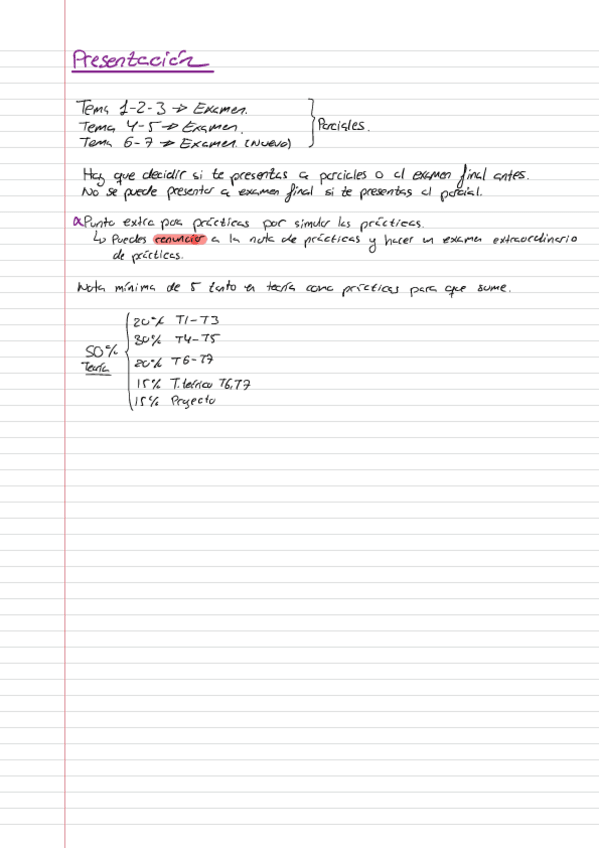 Presentación
Tema 1-2-3 → Examen.
Tema 4-5 → Examen.
Tema 6-7 → Examen (Nuevo)
Parciales.
Hay que decidir si te presentas a parciales o al examen final antes.
No se puede presentar a examen final si te presentas al parcial.
Punto extra para prácticas por simular las prácticas.
↳ Puedes renunciar a la nota de prácticas y hacer un examen extraordinario
de prácticas.
Nota mínima de 5 tanto en teoría como prácticas para que sume.
50% Teoría
20% T1-T3
30% T4-T5
20% T6-T7
15% T. teórico T6,T7
15% Proyecto